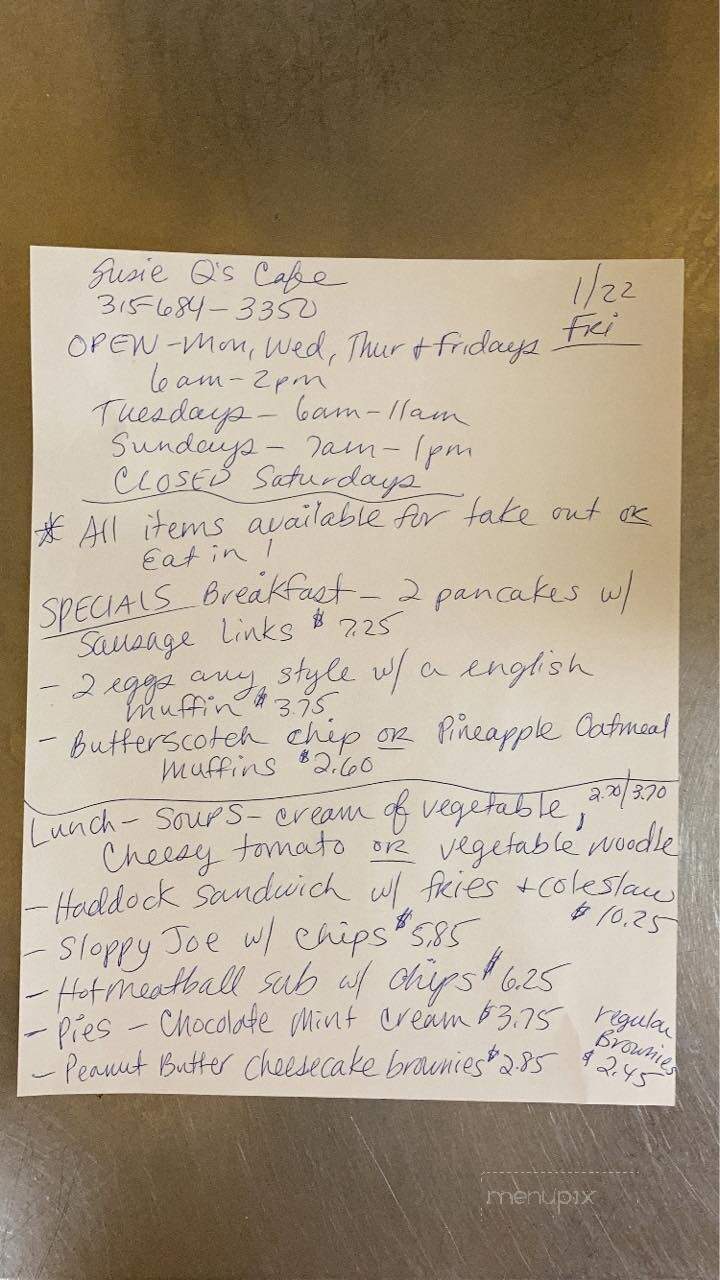 Susie Q's Cafe
1/22
315-684-3350
Fri
OPEN - Mon, Wed, Thur + Fridays
6am - 2pm
Tuesdays - 6am - 11am
Sundays - 7am - 1pm
CLOSED Saturdays
* All items available for take out or
Eat in!
SPECIALS Breakfast - 2 pancakes w/
Sausage Links $7.25
- 2 eggs any style w/ a english
muffin $3.75
- Butterscotch chip or Pineapple Oatmeal
Muffins $2.60
Lunch - Soups - cream of vegetable, 2.70/3.70
Cheesy tomato or vegetable noodle
- Haddock sandwich w/ fries + coleslaw
$10.25
- Sloppy Joe w/ chips $5.85
- Hot meatball sub w/ chips $6.25
- Pies - Chocolate Mint Cream $3.75
- Peanut Butter Cheesecake brownies $2.85
regular
Brownies
$2.45
menupix